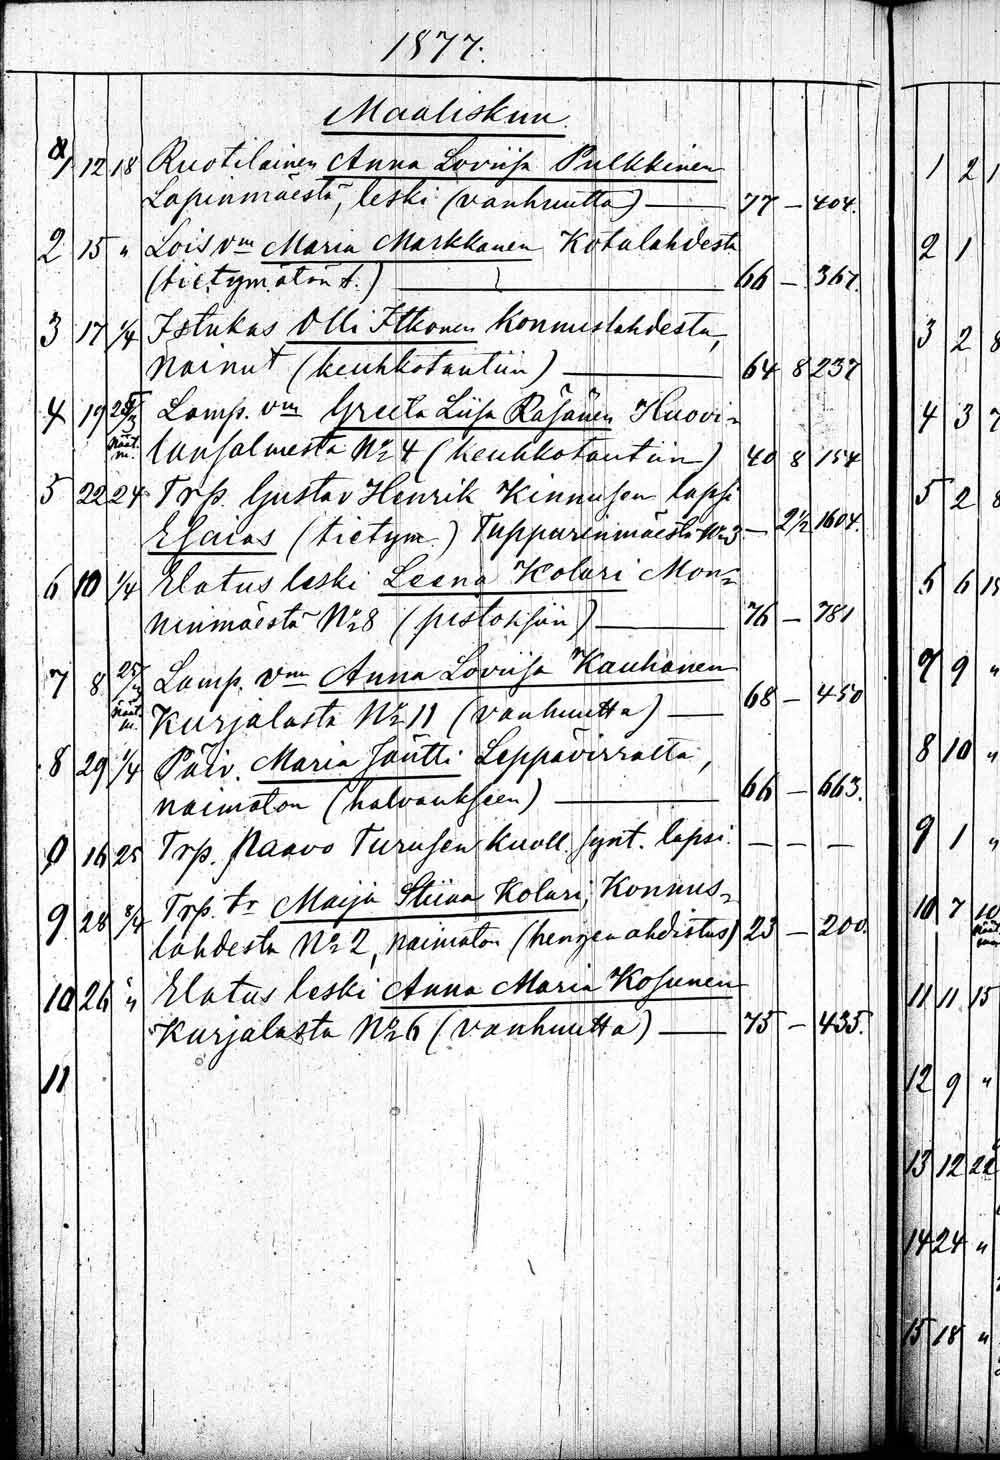 1877.
Maaliskuu.
1 12 18 Ruotilainen Anna Loviisa Pulkkinen
Lapinmäestä, leski (vanhuutta) — 77 — 404.
2 15 " Lois vm Maria Markkanen Kotalahdesta
(tietymätön t.) — 66 — 367.
3 17 1/4 Istukas Olli Itkonen Konnuslahdesta,
nainut (keuhkotautiin) — 64 8 237
4 19 25/3 Lamp. vm Greeta Liisa Räsänen Huovi-
lansalmesta No 4 (keuhkotautiin) 40 8 154
5 22 24 Trp. Gustav Henrik Kinnusen lapsi
Esaias (tietym.) Tuppurinmäestä No 3 — 2 1/2 1604.
6 10 1/4 Elatus leski Leena Kolari Mon-
ninmäestä No 8 (pistoksiin) — 76 — 781
7 8 25/3 Lamp. vm Anna Loviisa Kauhanen
Kurjalasta No 11 (vanhuutta) — 68 — 450
8 29 1/4 Päiv. Maria Jäntti Leppävirralta,
naimaton (halvaukseen) — 66 — 663.
0 16 25 Trp. Paavo Turusen kuoll. synt. lapsi. — — —
9 28 8/4 Trp. tr Maija Stiina Kolari, Konnus-
lahdesta No 2, naimaton (hengen ahdistus) 23 — 200.
10 26 " Elatus leski Anna Maria Kosunen
Kurjalasta No 6 (vanhuutta) — 75 — 435.
11
1 2 1
2 1
3 2 8
4 3 7
5 2 8
6 6 15
7 9 "
8 10 "
9 1 "
10 7 10
11 11 15
12 9 "
13 12 22
14 24 "
15 18 "